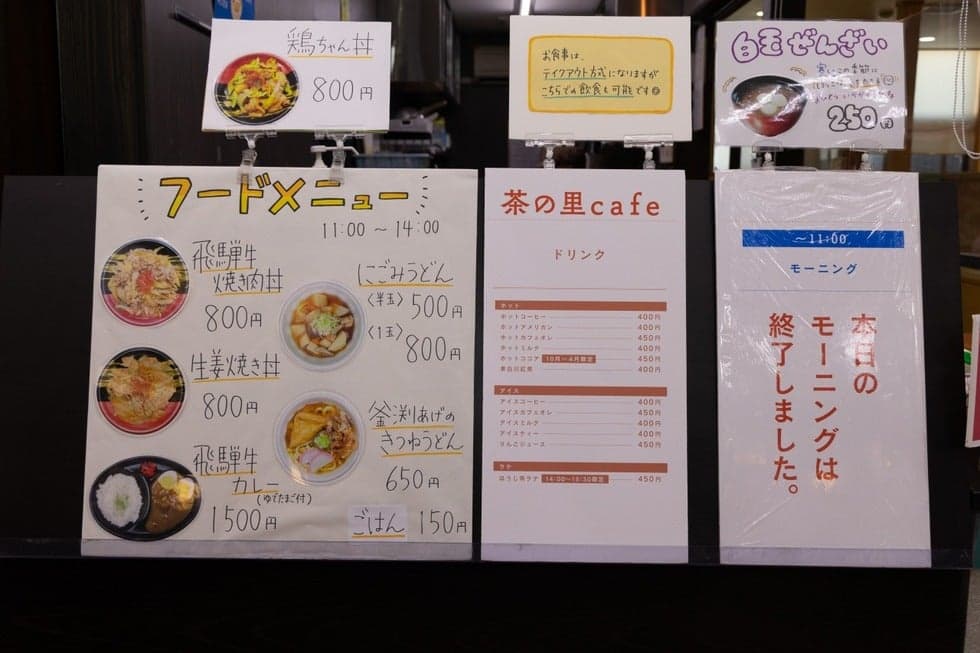 鶏ちゃん丼
800円
お食事は、
テイクアウト方式になりますが
こちらでの飲食も可能です
白玉ぜんざい
寒いこの季節に
250円
フードメニュー
11:00 ~ 14:00
飛騨牛
焼き肉丼
800円
生姜焼き丼
800円
飛騨牛
カレー
(ゆでたまご付)
1500円
にごみうどん
〈半玉〉500円
〈1玉〉800円
釜渕りあげの
きつねうどん
650円
ごはん 150円
茶の里cafe
ドリンク
ホット
ホットコーヒー 400円
ホットアメリカン 400円
ホットカフェオレ 450円
ホットミルク 400円
ホットココア 10月~4月限定 450円
東白川紅茶 400円
アイス
アイスコーヒー 400円
アイスカフェオレ 450円
アイスミルク 400円
アイスティー 400円
りんごジュース 450円
ラテ
ほうじ茶ラテ 14:00~15:30限定 450円
~11:00
モーニング
本日の
モーニングは
終了しました。